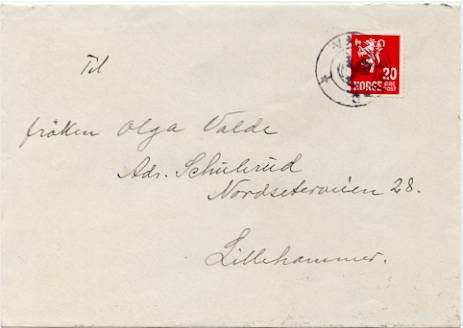 Til
20
NORGE
fröken Olga Valde
Adr. Schulerud
Nordseterveien 28.
Lillehammer.